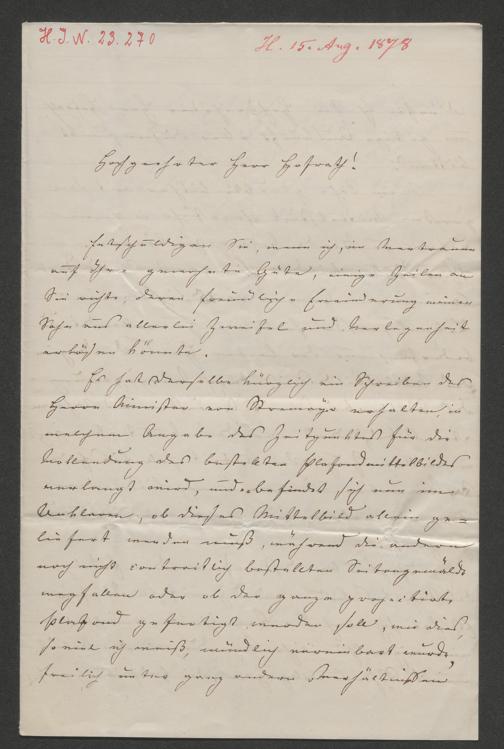 H.I.N. 23.270
H. 15. Aug. 1878
Hochgeehrter Herr Hofrath!
Entschuldigen Sie, wenn ich, im Vertrauen
auf Ihre gewohnte Güte, einige Zeilen an
Sie richte, deren freundliche Erwiederung meinen
Sohn aus allerlei Zweifel und Verlegenheit
erlösen könnte.
Es hat derselbe kürzlich ein Schreiben des
Herrn Minister von Stremayr erhalten, in
welchem Angabe des Zeitpunktes für die
Vollendung des bestellten Plafondmittelbildes
verlangt wird, und befindet sich nun im
Unklaren, ob dieses Mittelbild allein ge=
liefert werden muß, während die andern
noch nicht contractlich bestellten Seitengemälde
wegfallen oder ob der ganze projectirte
Plafond gefertigt werden soll, wie dies,
so viel ich weiß, mündlich vereinbart wurde,
freilich unter ganz andern Verhältnissen